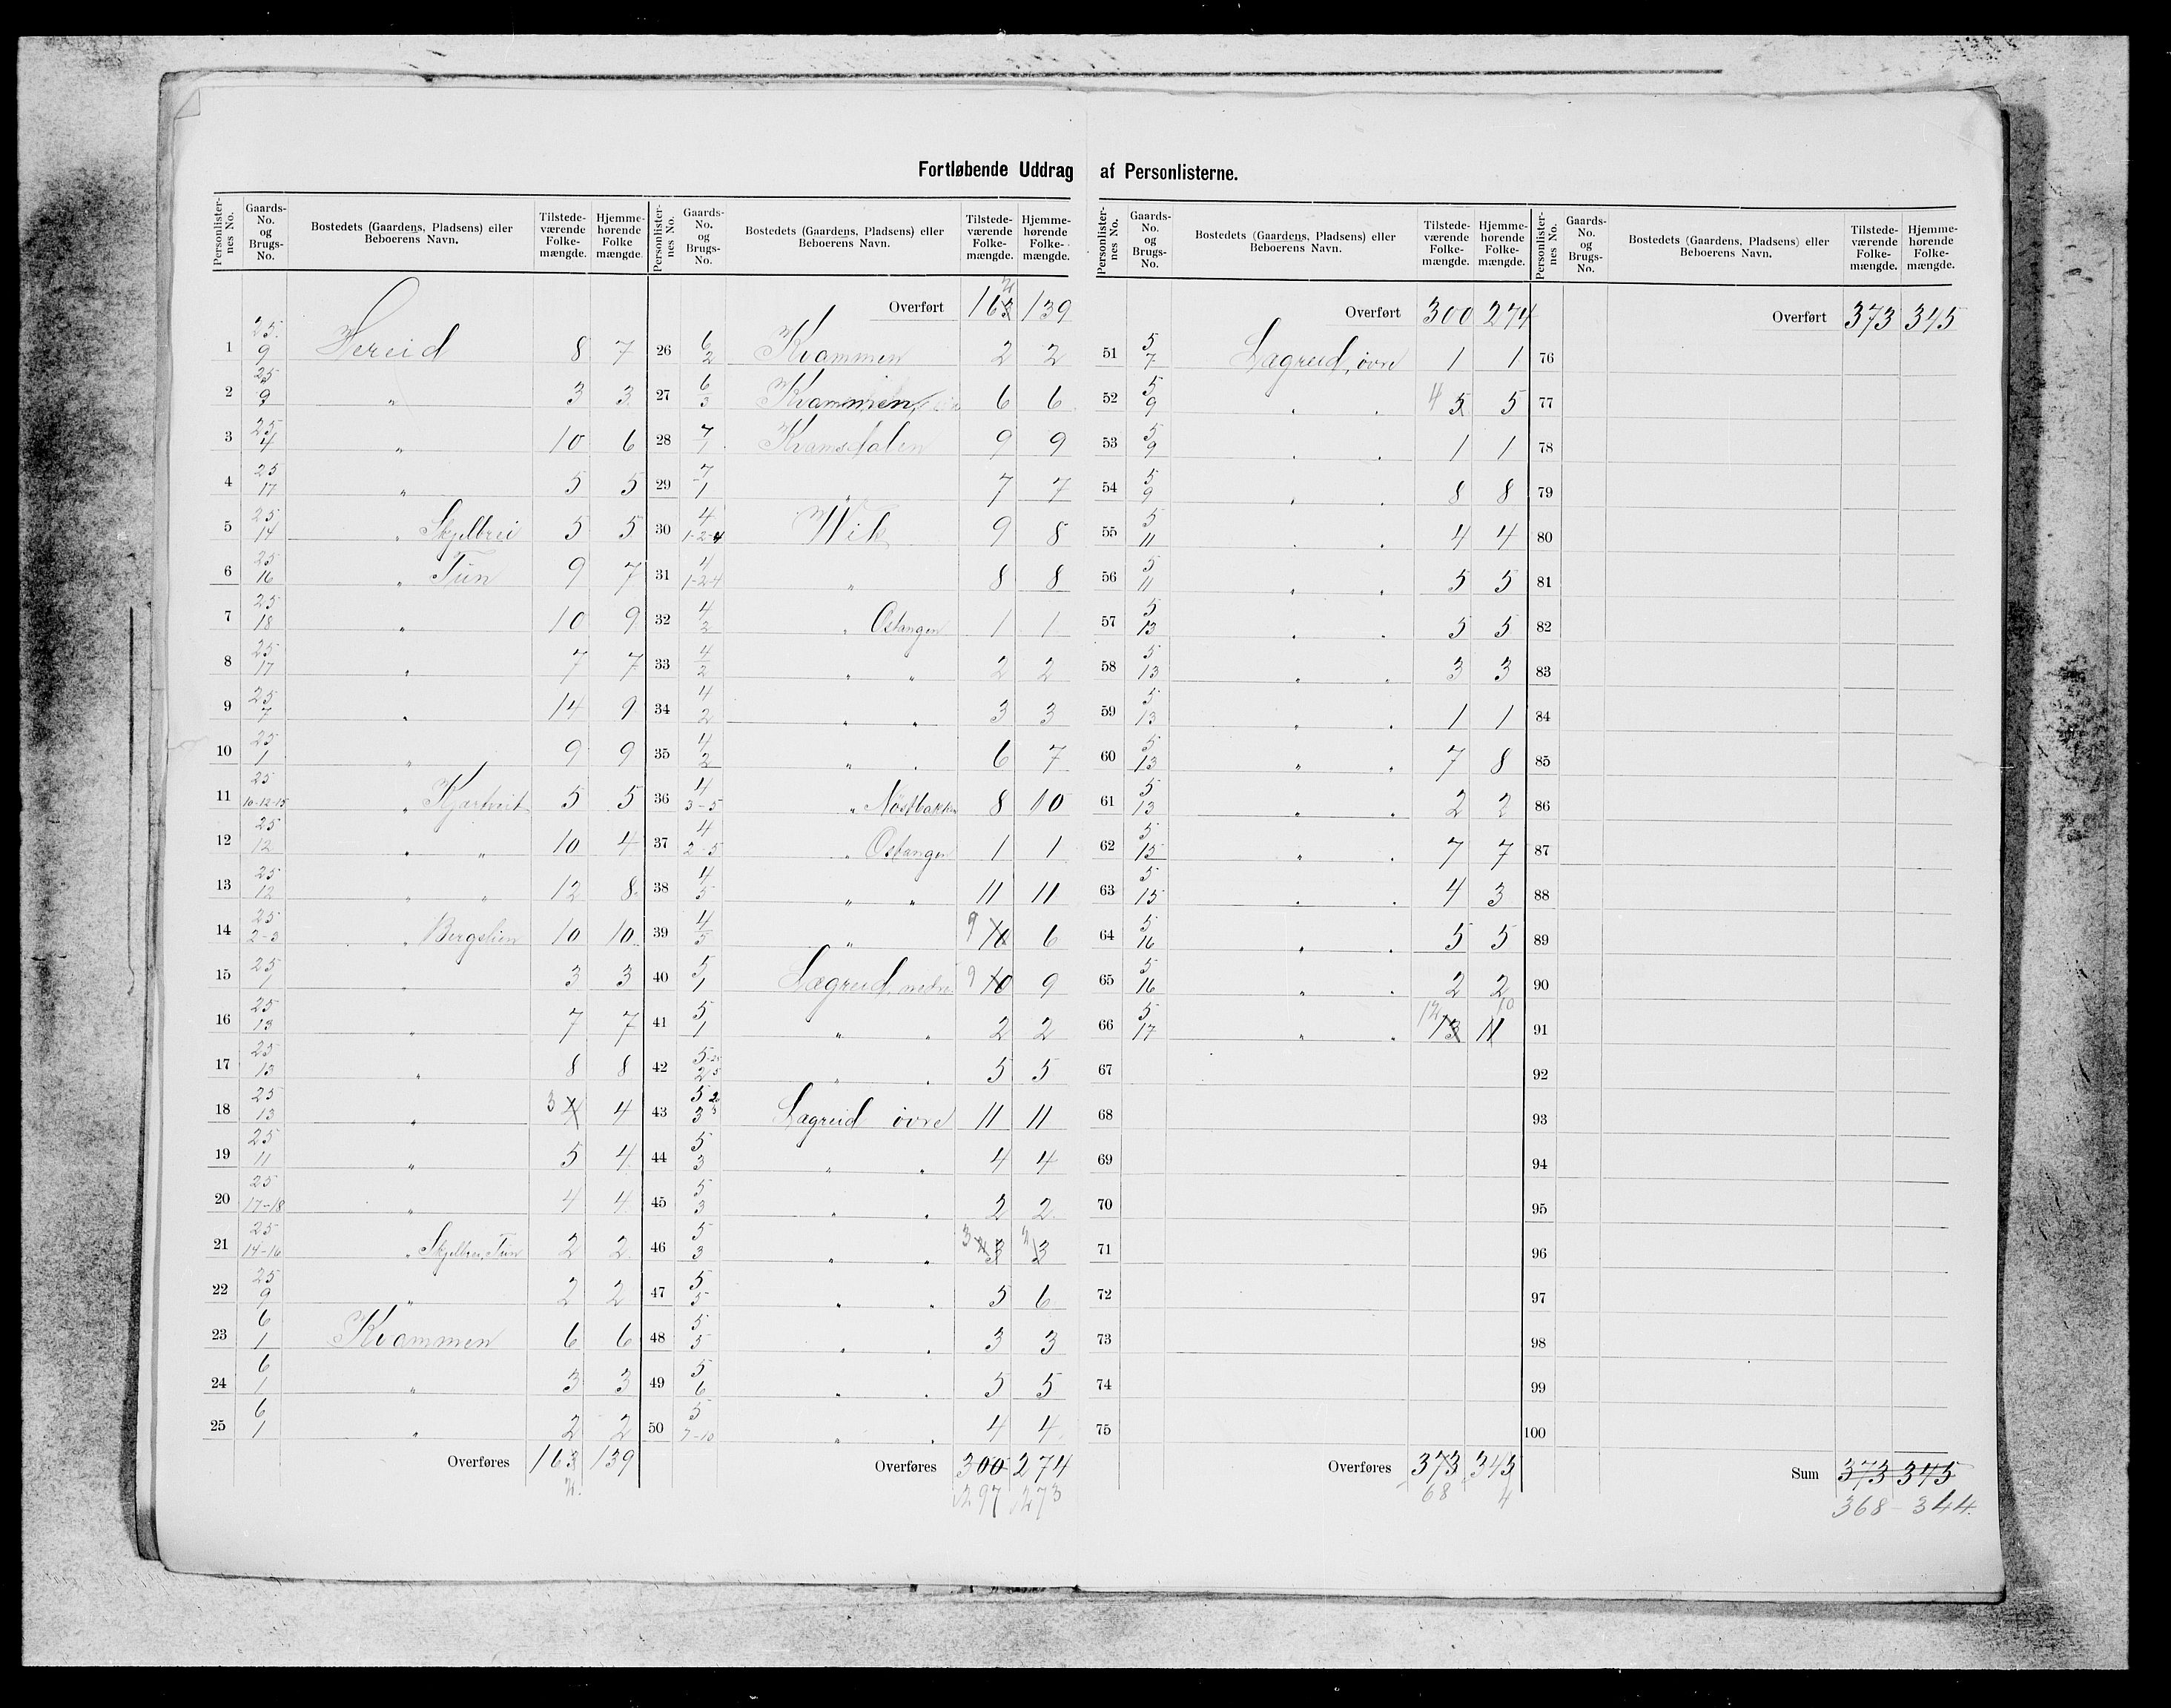 Fortløbende Uddrag af Personlisterne.
Personlister-nes No. | Gaards-No. og Brugs-No. | Bostedets (Gaardens, Pladsens) eller Beboerens Navn. | Tilstede-værende Folke-mængde. | Hjemme-hørende Folke mængde.
1 | 25. 9 | Hereid | 8 | 7
2 | 25 9 | " | 3 | 3
3 | 25 4 | " | 10 | 6
4 | 25 17 | " | 5 | 5
5 | 25 14 | " Skjelbrei | 5 | 5
6 | 25 16 | " Tun | 9 | 7
7 | 25 18 | " | 10 | 9
8 | 25 17 | " | 7 | 7
9 | 25 7 | " | 14 | 9
10 | 25 1 | " | 9 | 9
11 | 25 10-12-15 | " Kjartveit | 5 | 5
12 | 25 12 | " " | 10 | 4
13 | 25 12 | " " | 12 | 8
14 | 25 2-3 | " Bergslien | 10 | 10
15 | 25 1 | " | 3 | 3
16 | 25 13 | " | 7 | 7
17 | 25 13 | " | 8 | 8
18 | 25 13 | " | 3 4 | 4
19 | 25 11 | " | 5 | 4
20 | 25 17-18 | " | 4 | 4
21 | 25 14-16 | " Skjelbrei, Tun | 2 | 2
22 | 25 9 | " | 2 | 2
23 | 6 1 | Kvammen | 6 | 6
24 | 6 1 | " | 3 | 3
25 | 6 1 | " | 2 | 2
Overføres | 163 | 139
2.
Personlister-nes No. | Gaards-No. og Brugs-No. | Bostedets (Gaardens, Pladsens) eller Beboerens Navn. | Tilstede-værende Folke-mængde. | Hjemme-hørende Folke-mængde.
Overført | 163 2 | 139
26 | 6 2 | Kvammen | 2 | 2
27 | 6 3 | Kvammen | 6 | 6
28 | 7 1 | Kvamsdalen | 9 | 9
29 | 7 1 | " | 7 | 7
30 | 4 1-2-4 | Wik | 9 | 8
31 | 4 1-2-4 | " | 8 | 8
32 | 4 2 | " Ostangen | 1 | 1
33 | 4 2 | " " | 2 | 2
34 | 4 2 | " " | 3 | 3
35 | 4 2 | " " | 6 | 7
36 | 4 3-5 | " Nöstbakken | 8 | 10
37 | 4 2-5 | " Ostangen | 1 | 1
38 | 4 5 | " " | 11 | 11
39 | 4 5 | " | 9 10 | 6
40 | 5 1 | Lægreid, nedre | 9 10 | 9
41 | 5 1 | " " | 2 | 2
42 | 5 25 2 5 | " " | 5 | 5
43 | 5 2 3 | Lægreid øvre | 11 | 11
44 | 5 3 | " " | 4 | 4
45 | 5 3 | " " | 2 | 2
46 | 5 3 | " " | 3 4 3 | 2 3
47 | 5 5 | " " | 5 | 6
48 | 5 5 | " " | 3 | 3
49 | 5 6 | " " | 5 | 5
50 | 5 7-10 | " " | 4 | 4
Overføres | 300 | 274
297 | 273
Personlister-nes No. | Gaards-No. og Brugs-No. | Bostedets (Gaardens, Pladsens) eller Beboerens Navn. | Tilstede-værende Folke-mængde. | Hjemme-hørende Folke-mængde.
Overført | 300 | 274
51 | 5 7 | Lægreid, øvre | 1 | 1
52 | 5 9 | " " | 4 5 | 5
53 | 5 9 | " " | 1 | 1
54 | 5 9 | " " | 8 | 8
55 | 5 11 | " " | 4 | 4
56 | 5 11 | " " | 5 | 5
57 | 5 13 | " " | 5 | 5
58 | 5 13 | " " | 3 | 3
59 | 5 13 | " " | 1 | 1
60 | 5 13 | " " | 7 | 8
61 | 5 13 | " " | 2 | 2
62 | 5 15 | " " | 7 | 7
63 | 5 15 | " " | 4 | 3
64 | 5 16 | " " | 5 | 5
65 | 5 16 | " " | 2 | 2
66 | 5 17 | " " | 12 13 | 10 11
67
68
69
70
71
72
73
74
75
Overføres | 373 | 345
68 | 4
Personlister-nes No. | Gaards-No. og Brugs-No. | Bostedets (Gaardens, Pladsens) eller Beboerens Navn. | Tilstede-værende Folke-mængde. | Hjemme-hørende Folke-mængde.
Overført | 373 | 345
76
77
78
79
80
81
82
83
84
85
86
87
88
89
90
91
92
93
94
95
96
97
98
99
100
Sum | 373 | 345
368 - 344.